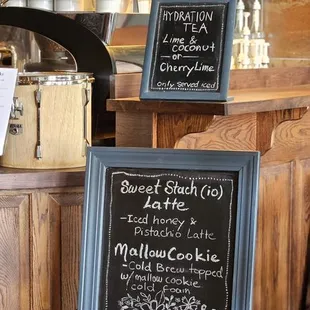 HYDRATION
TEA
Lime &
coconut
or
CherryLime
only served iced
Sweet Stach(io)
Latte
-Iced honey &
Pistachio Latte
MallowCookie
-Cold Brew topped
w/mallow cookie
cold foam